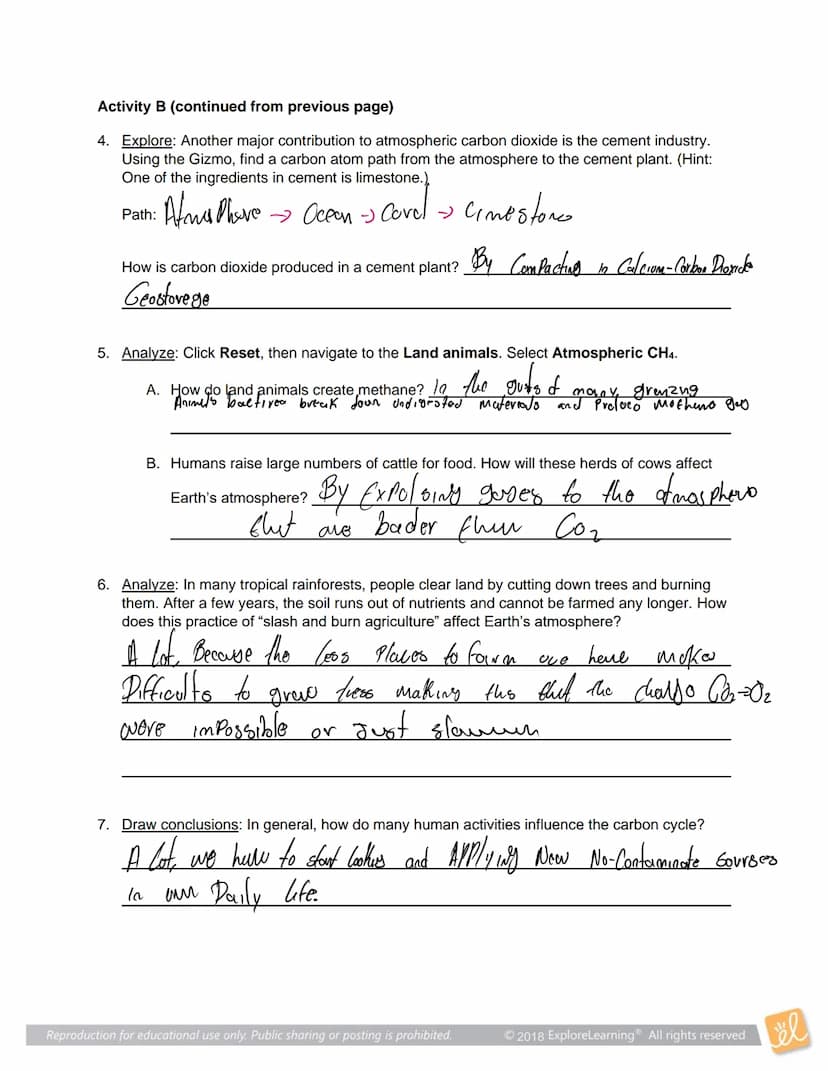 Activity B (continued from previous page)
4. Explore: Another major contribution to atmospheric carbon dioxide is the cement industry.
Using the Gizmo, find a carbon atom path from the atmosphere to the cement plant. (Hint:
One of the ingredients in cement is limestone.)
Path: AtmosPhere → Ocean → Coral → Limestone
How is carbon dioxide produced in a cement plant? By Compacting in Calcium-Carbon Dioxide
Geostorege
5. Analyze: Click Reset, then navigate to the Land animals. Select Atmospheric CH₄.
A. How do land animals create methane? In the guts of many grenzng
Animals bactirea break down undigested materials and
B. Humans raise large numbers of cattle for food. How will these herds of cows affect
Earth's atmosphere? By Explosing gases to the atmosphere
that are bader then CO₂
6. Analyze: In many tropical rainforests, people clear land by cutting down trees and burning
them. After a few years, the soil runs out of nutrients and cannot be farmed any longer. How
does this practice of “slash and burn agriculture” affect Earth's atmosphere?
A lot, Because the less Places to farm are here makes
Difficults to grow trees making this that the CO₂=O₂
were imPossible or Just
7. Draw conclusions: In general, how do many human activities influence the carbon cycle?
A lot, we have to start and APPlying New No-Contaminate Sourses
In our Daily life.
Reproduction for educational use only. Public sharing or posting is prohibited. © 2018 ExploreLearning® All rights reserved
el